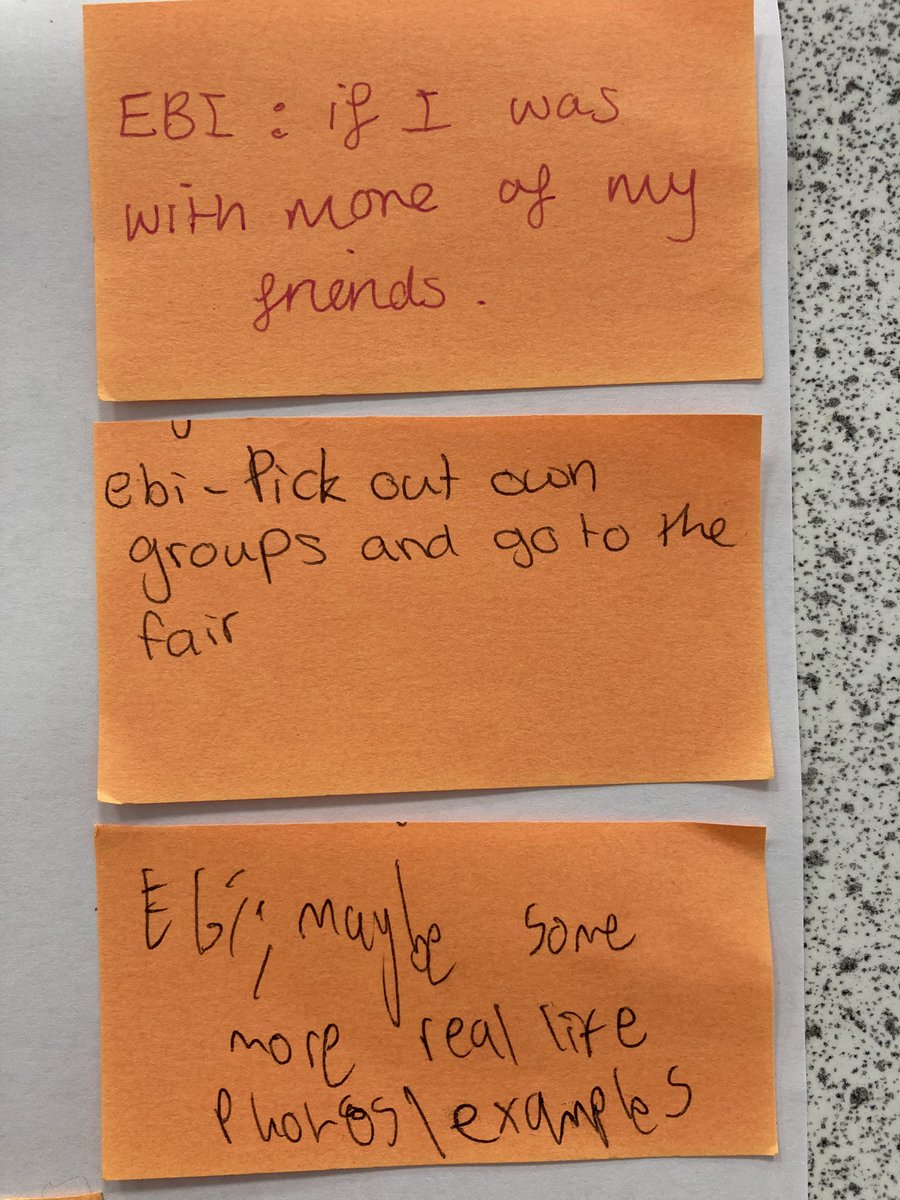 EBI : if I was
with more of my
friends.
ebi - Pick out own
groups and go to the
fair
Ebi; maybe some
more real life
Photos\examples